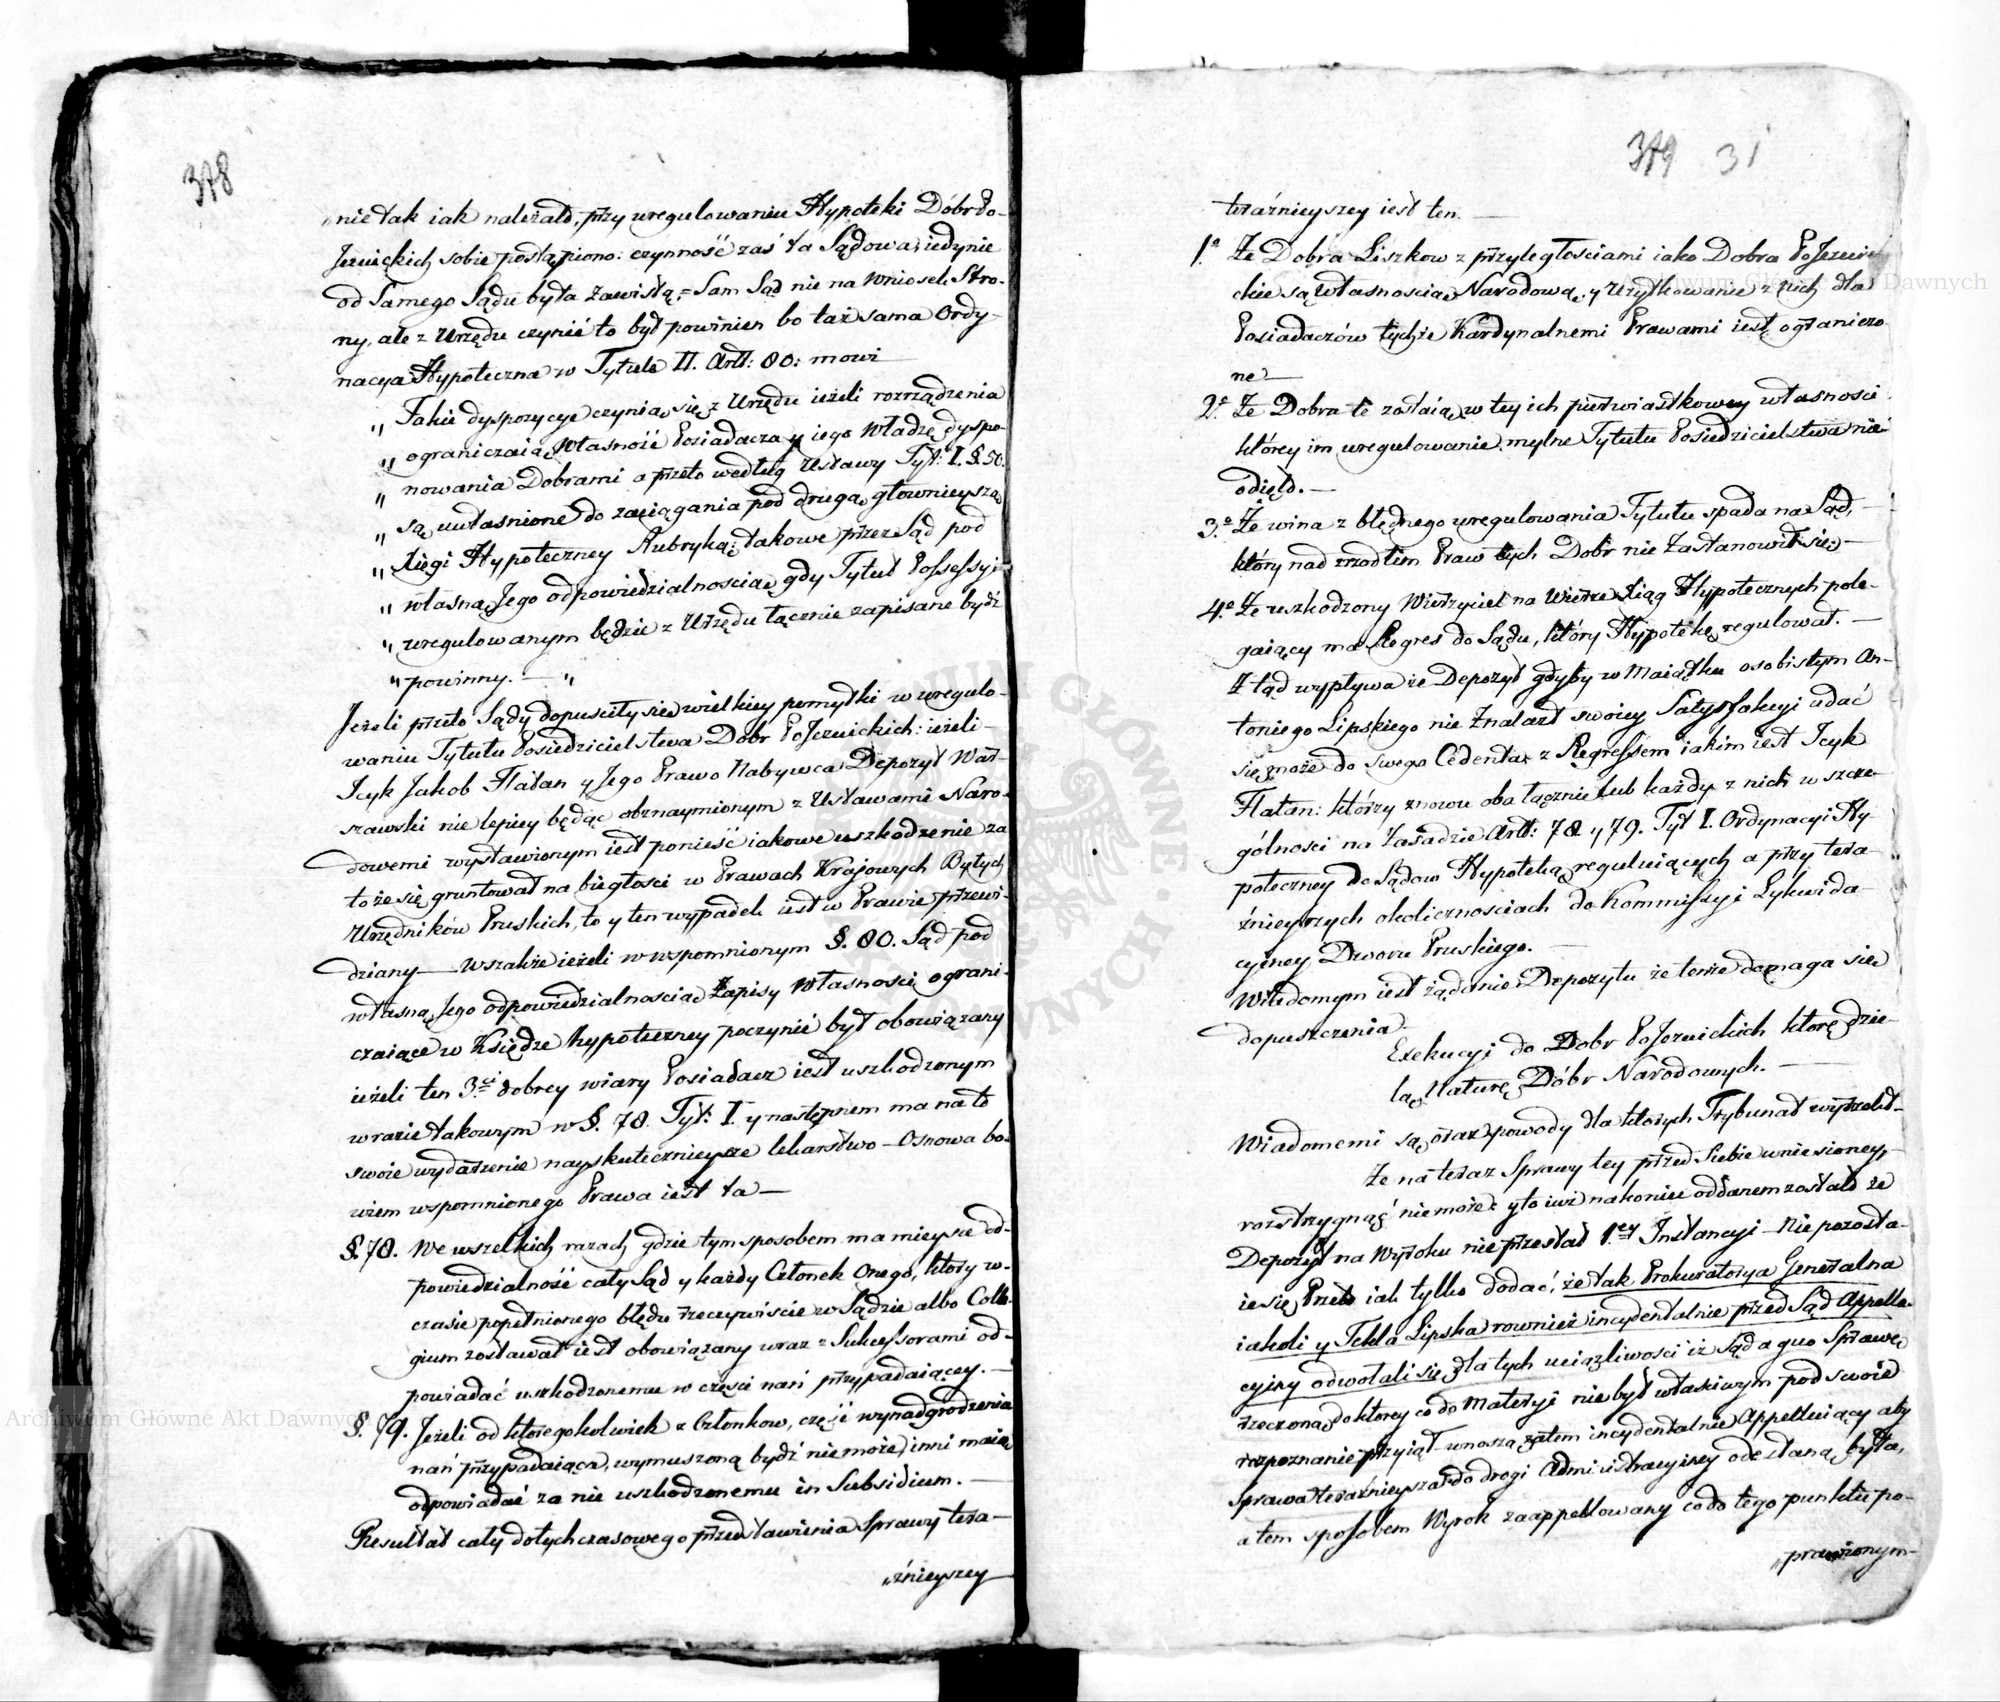 378
nie tak iak należało, przy uregulowaniu Hypoteki Dóbr Po-
Jezuickich sobie postąpiono: czynność zaś ta Sądowa, iedynie
od Samego Sądu była zawisłą, = Sam Sąd nie na Wniosek Stro-
ny, ale z Urzędu czynić to był powinien bo taż sama Ordy-
nacya Hypoteczna w Tytule II. Artt: 80: mowi
„ Takie dyspozycye czynią się z Urzędu ieżeli rozrządzenia
„ ograniczaią Własność Posiadacza y iego Władzę dyspo-
„ nowania Dobrami a przeto według Ustawy Tyt: I. §. 50.
„ są uwłasnione do zaciągania pod drugą głownieyszą
„ Xięgi Hypoteczney Rubryką; takowe przez Sąd pod
„ własną Jego odpowiedzialnoscią gdy Tytuł Possessyi
„ uregulowanym będzie z Urzędu łącznie zapisane bydź
„ powinny. — „
Jeżeli przeto Sądy dopuściły się wielkiey pomyłki w uregulo-
waniu Tytułu Posiedzicielstwa Dobr PoJezuickich: ieżeli
Icyk Jakob Flatau y Jego Prawo Nabywca Depozyt War-
szawski nie lepiey będąc obznaymionym z Ustawami Naro-
dowemi wystawionym iest ponieść iakowe uszkodzenie za
to że się gruntował na biegłosci w Prawach Krajowych Byłych
Urzędników Pruskich, to y ten wypadek iest w Prawie przewi-
dziany — wszakże ieżeli w wspomnionym §. 80. Sąd pod
własną Jego odpowiedzialnoscią Zapisy Własnosci ograni-
czaiące w Xsiędze hypoteczney poczynić był obowiązany
ieżeli ten 3ci dobrey wiary Posiadacz iest uszkodzonym
w razie takowym w §. 78. Tyt: I. y następnem ma na to
swoie wydarzenie nayskutecznieysze lekarstwo — Osnowa bo-
wiem wspomnionego Prawa iest ta —
§. 78. We wszelkich razach gdzie tym sposobem ma mieysce od-
powiedzialność cały Sąd y każdy Członek Onego, ktory w
czasie popełnionego błędu rzeczywiście w Sądzie albo Colle-
gium zostawał iest obowiązany wraz z Sukcessorami od-
powiadać uszkodzonemu w części nań przypadaiącey. —
§. 79. Jeżeli od ktoregokolwiek z Członkow, część wynadgrodzenia
nań przypadaiąca, wymuszoną bydź nie może, inni maią
odpowiadać za nie uszkodzonemu in Subsidium. —
Resultat cały dotychczasowego przedstawienia Sprawy tera-
„źnieyszey
379 31
teraźnieyszey iest ten. —
1o Że Dobra Liszkow z przyległosciami iako Dobra PoJezuic-
kie są Własnoscią Narodową, y Użytkowanie z nich dla
Posiadaczów tychże Kardynalnemi Prawami iest ograniczo-
ne —
2o Że Dobra te zostaią w tey ich pierwiastkowey własnosci
ktorey im uregulowanie mylne Tytułu Posiedzicielstwa nie
odięło. —
3o Że wina z błędnego uregulowania Tytułu spada na Sąd, —
który nad zrzodłem Praw tych Dobr nie zastanowił się; —
4o Że uszkodzony Wierzyciel na Wierze Xiąg Hypotecznych pole-
gaiący ma Regres do Sądu, który Hypotekę regulował. —
Z tąd wypływa że Depozyt gdyby w Maiątku osobistym An-
toniego Lipskiego nie Znalazł swoiey Satysfakcyi udać
się może do swego Cedenta z Regressem iakim iest Icyk
Flatau: którzy znowu oba łącznie lub każdy z nich w szcze-
gólnosci na Zasadzie Artt: 78 y 79. Tyt I. Ordynacyi Hy-
poteczney do Sądow Hypotekę reguluiących a przy tera-
źnieyszych okolicznosciach do Kommissyi Lykwida-
cyiney Dworu Pruskiego. —
Wiadomym iest żądanie Depozytu że tenże domaga się
dopuszczenia
Exekucyi do Dobr PoJezuickich które dzie-
lą Naturę Dóbr Narodowych. —
Wiadomemi są oraz powody dla ktorych Trybunał wyrzekł —
Że na teraz Sprawy tey przed Siebie wniesioney,
rozstrzygnąć nie może: y to iuż nakoniec oddanem zostało że
Depozyt na Wyroku nie przestał 1ey Instancyi — Nie pozosta-
ie się Przeto iak tylko dodać, że tak Prokuratorya Generalna
iakoli y Tekla Lipska rownież incydentalnie przed Sąd Appella-
cyiny odwołali się dla tych uciążliwosci iż Sąd a quo Sprawę
rzeczoną do ktorey co do Materyi nie był własciwym pod swoie
rozpoznanie przyiął — wnoszą zatem incydentalnie Appelluiący aby
Sprawa teraźnieysza do drogi Administracyiney odesłaną była,
a tem sposobem Wyrok zaappellowany co do tego punktu po-
„prawionym —